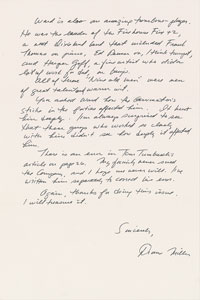 Ward is also an amazing trombone player.
He was the leader of the Firehouse Five + 2,
a
Dixieland band that included Frank
Thomas on piano, Ed Penner on,
and Harper Goff, a fine artist who did a
lot of work for Walt, on banjo.
All of these "Nine old men" were men
of great talent and warm wit.
You asked about how the Generation's
sticks in the
affected him. It hurt
him deeply. I'm always surprised to see
that these guys who worked so closely
with him didn't see how deeply it affected
him.
There is an error in Tom
article on page 20. My family never sued
the Company, and I hope we never will. I've
written him separately, to correct his error.
Again, thanks for doing this issue.
I will treasure it.
Sincerely,
Diane Miller